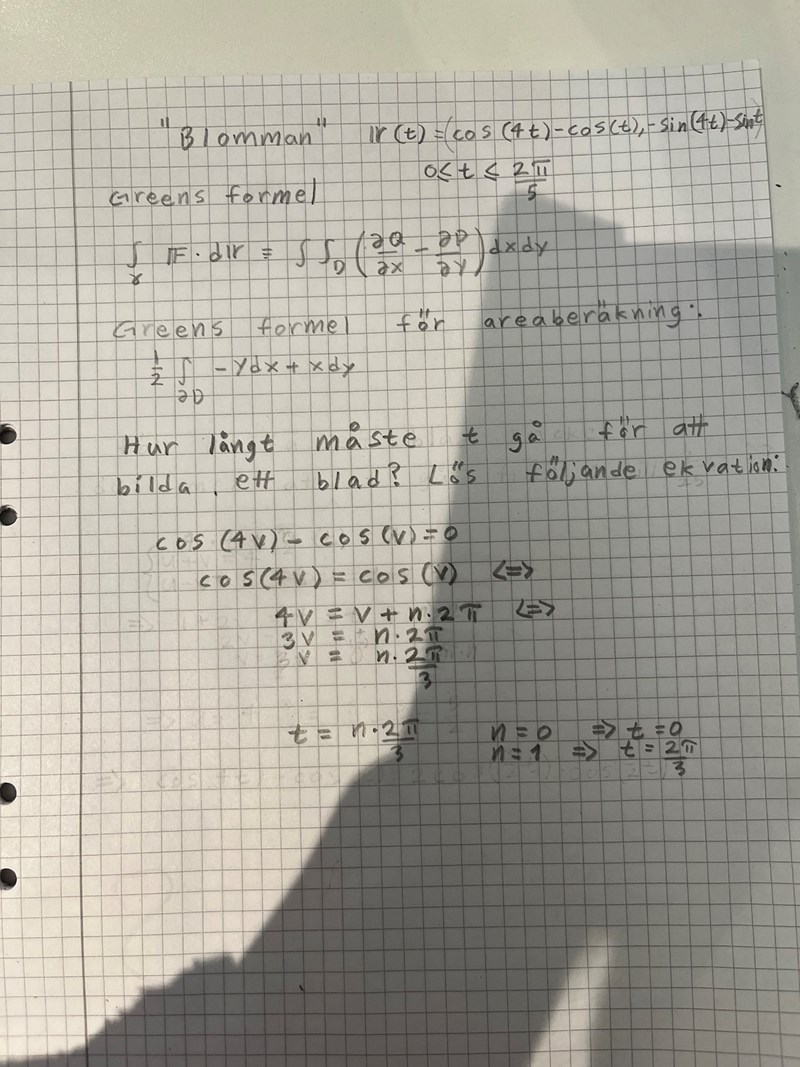 "Blomman" 𝕣(t) = (cos(4t)-cos(t), -sin(4t)-sint)
0 ≤ t ≤ 2π/5
Greens formel
∫_γ 𝔽·d𝕣 = ∫∫_D (∂Q/∂x - ∂P/∂y) dxdy
Greens formel för areaberäkning:
1/2 ∫_∂D -ydx + xdy
Hur långt måste t gå för att
bilda ett blad? Lös följande ekvation:
cos(4v) - cos(v) = 0
cos(4v) = cos(v) <=>
4v = v + n·2π <=>
3v = n·2π
v = n·2π/3
t = n·2π/3 n = 0 => t = 0
n = 1 => t = 2π/3